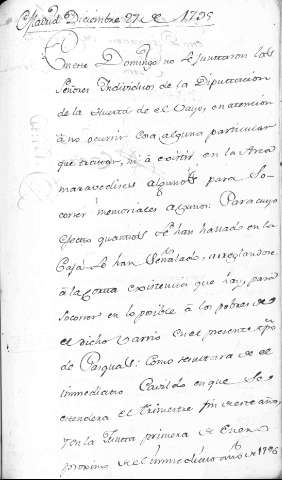 Madrid Diciembre 27 de 1795
En este Domingo no se juntaron los
Señores Individuos de la Diputacion
de la Huerta de el Vayo, en atencion
à no ocurrir cosa alguna particular
que tratar, ni à existir en la Arca
maravedises algunos para So-
correr memoriales algunos: Para cuyo
efecto quantos se han hallado en la
Caja lo han Señalado, arreglandose
à la corta existencia que hay, para
socorrer en lo posible à los pobres de
el dicho Varrio en el presente tpo
de Pasquas: Como resultara de el
immediato Cavildo en que Se
estendera el Trimestre fin de este año,
y en la Junta primera de Enero
proximo de el immediato año de 1796